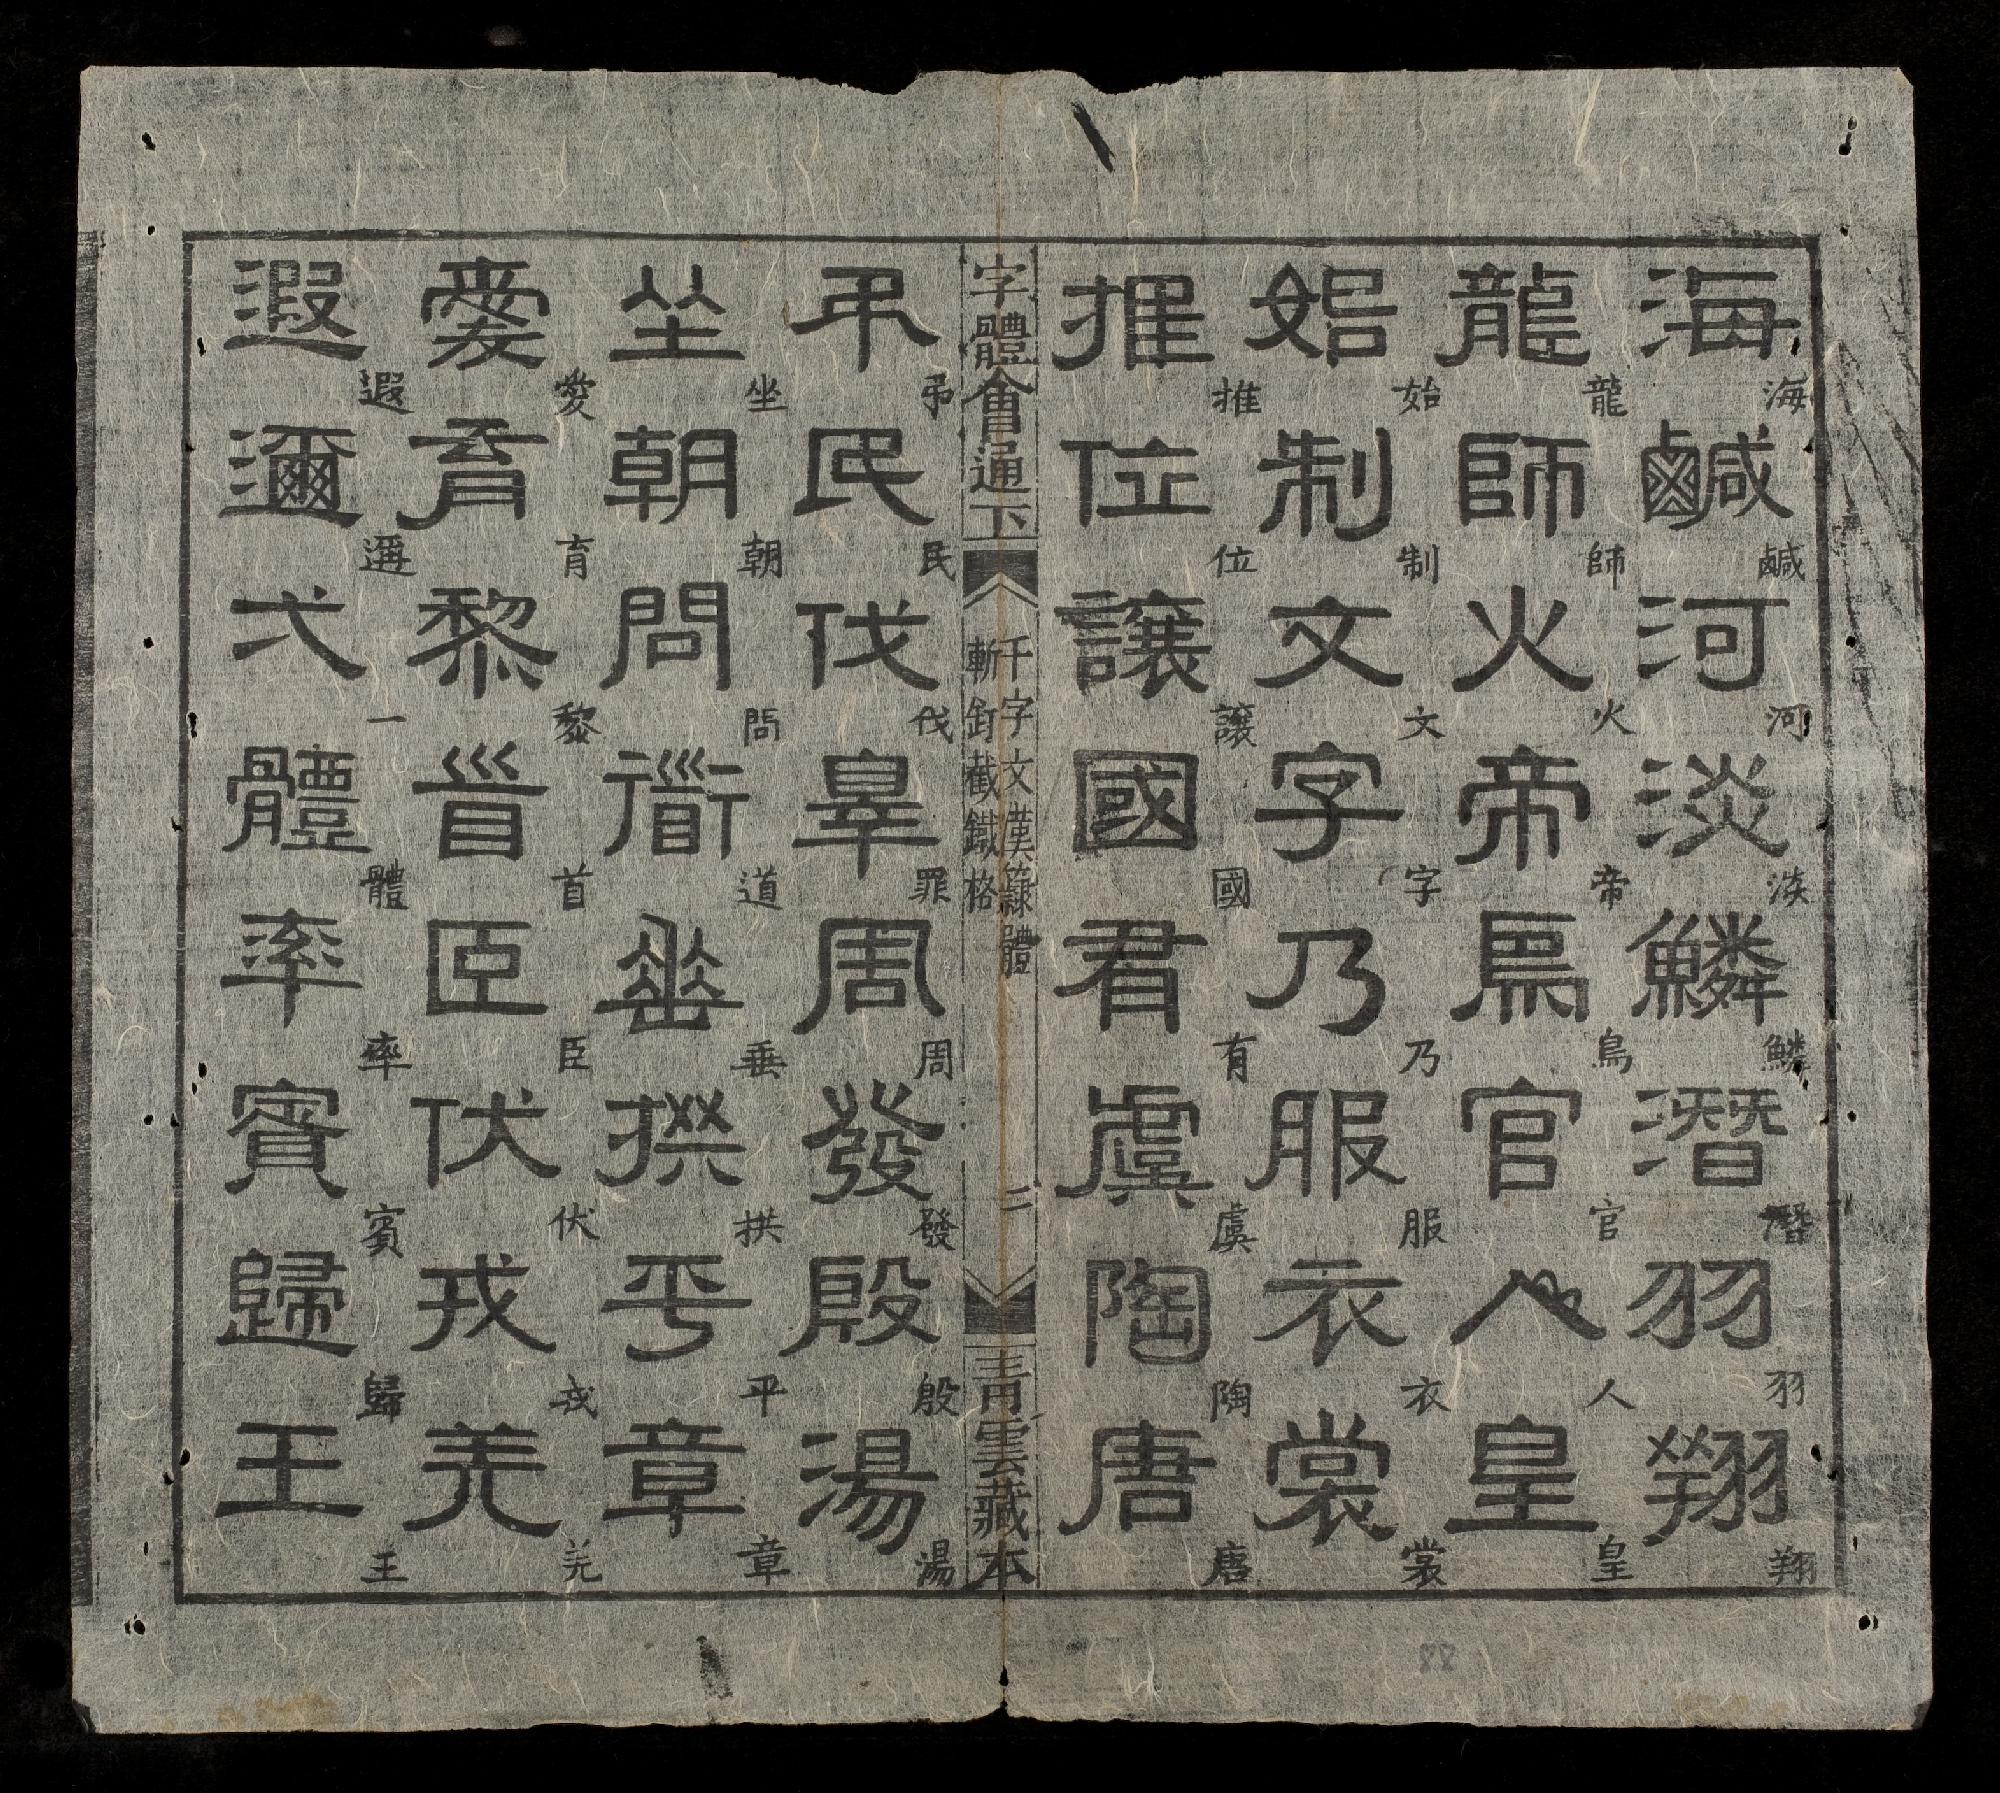 海鹹河淡鱗潛羽翔
海鹹河淡鱗潛羽翔
龍師火帝鳥官人皇
龍師火帝鳥官人皇
始制文字乃服衣裳
始制文字乃服衣裳
推位讓國有虞陶唐
推位讓國有虞陶唐
字體會通下
千字文漢隷體
斬釘截鐵格
二
青雲藏本
弔民伐辠周發殷湯
弔民伐罪周發殷湯
坐朝問衜垂拱平章
坐朝問道垂拱平章
愛育黎𩠐臣伏戎羌
愛育黎首臣伏戎羌
遐邇弌體率賓歸王
遐邇一體率賓歸王